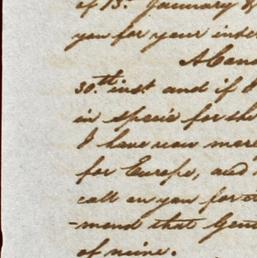 of 13th January &
you for your inde
A Cano
30th inst and if I
in specie for sh
I have now mor
for Europe, and
call on you for
-mend that Gen
of mine.